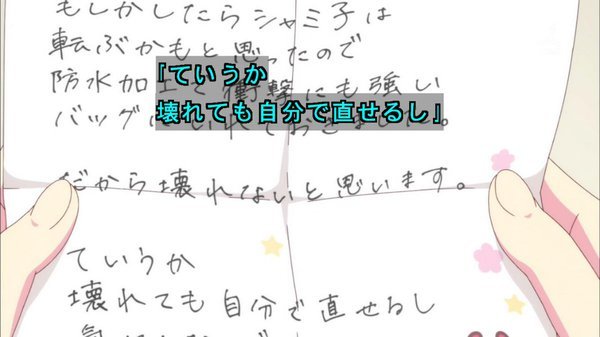 もしかしたらシャミ子は
転ぶかもと思ったので
防水加工で衝撃にも強い
バッグにいれておきました。
だから壊れないと思います。
ていうか
壊れても自分で直せるし
「ていうか
壊れても自分で直せるし」